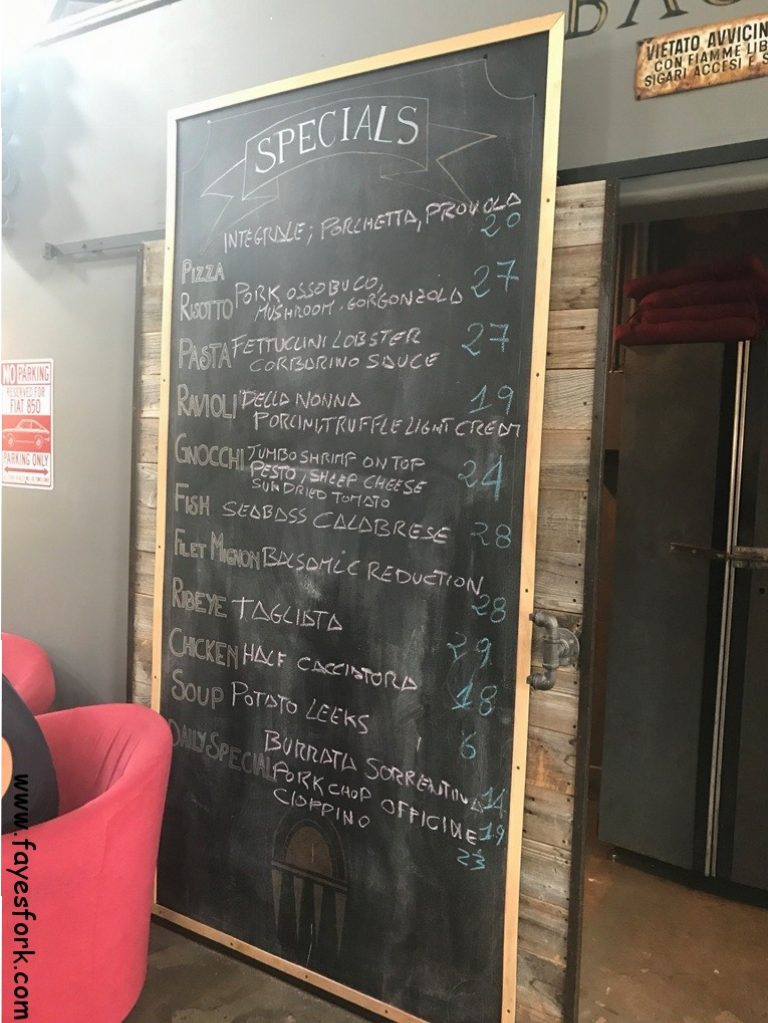 VIETATO AVVICIN
CON FIAMME LIB
SIGARI ACCESI E S
SPECIALS
PIZZA INTEGRALE; PORCHETTA, PROVOLA 20
RISOTTO PORK OSSOBUCO, 27
MUSHROOM, GORGONZOLA
PASTA FETTUCCINI LOBSTER 27
CORBARINO SAUCE
RAVIOLI DELLA NONNA 19
PORCINI, TRUFFLE LIGHT CREAM
GNOCCHI JUMBO SHRIMP ON TOP 24
PESTO, SHEEP CHEESE
SUN DRIED TOMATO
FISH SEABASS CALABRESE 28
FILET MIGNON BALSAMIC REDUCTION 28
RIBEYE TAGLIATA 29
CHICKEN HALF CACCIATORA 18
SOUP POTATO LEEKS 6
DAILY SPECIAL BURRATA SORRENTINA 14
PORK CHOP OFFICINE 19
CIOPPINO 23
NO PARKING
RESERVED FOR
FIAT 850
PARKING ONLY
www.fayesfork.com